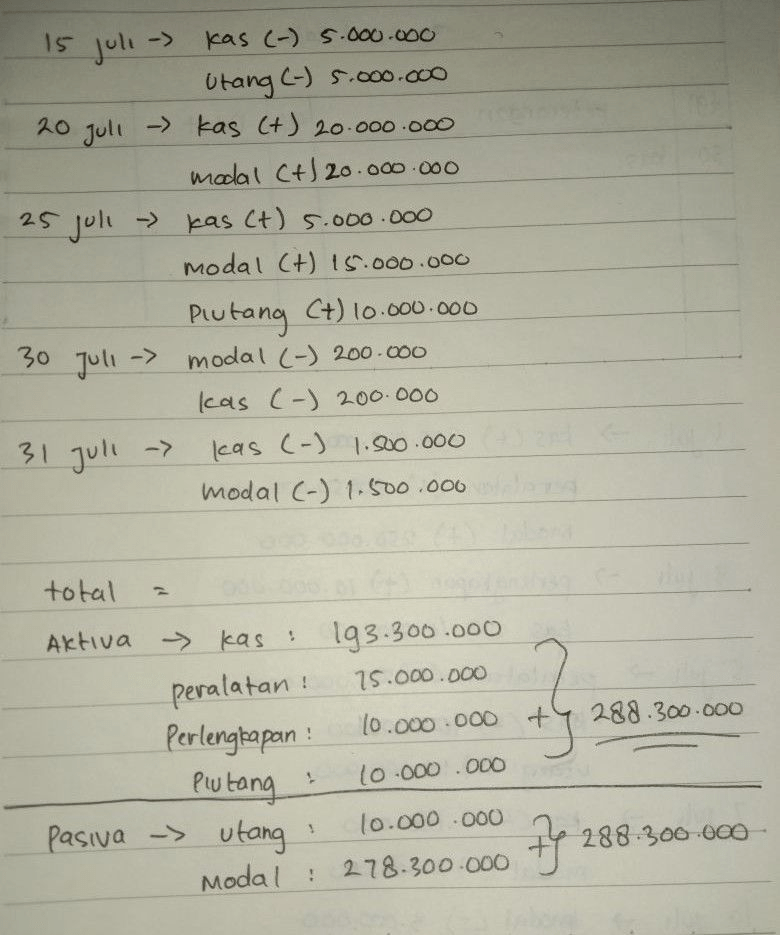 15 juli -> kas (-) 5.000.000
utang (-) 5.000.000
20 juli -> kas (+) 20.000.000
modal (+) 20.000.000
25 juli -> kas (+) 5.000.000
modal (+) 15.000.000
Piutang (+) 10.000.000
30 juli -> modal (-) 200.000
kas (-) 200.000
31 juli -> kas (-) 1.500.000
modal (-) 1.500.000
total =
Aktiva -> kas : 193.300.000
peralatan : 75.000.000
Perlengkapan : 10.000.000 + 288.300.000
Piutang : 10.000.000
Pasiva -> utang : 10.000.000 + 288.300.000
Modal : 278.300.000